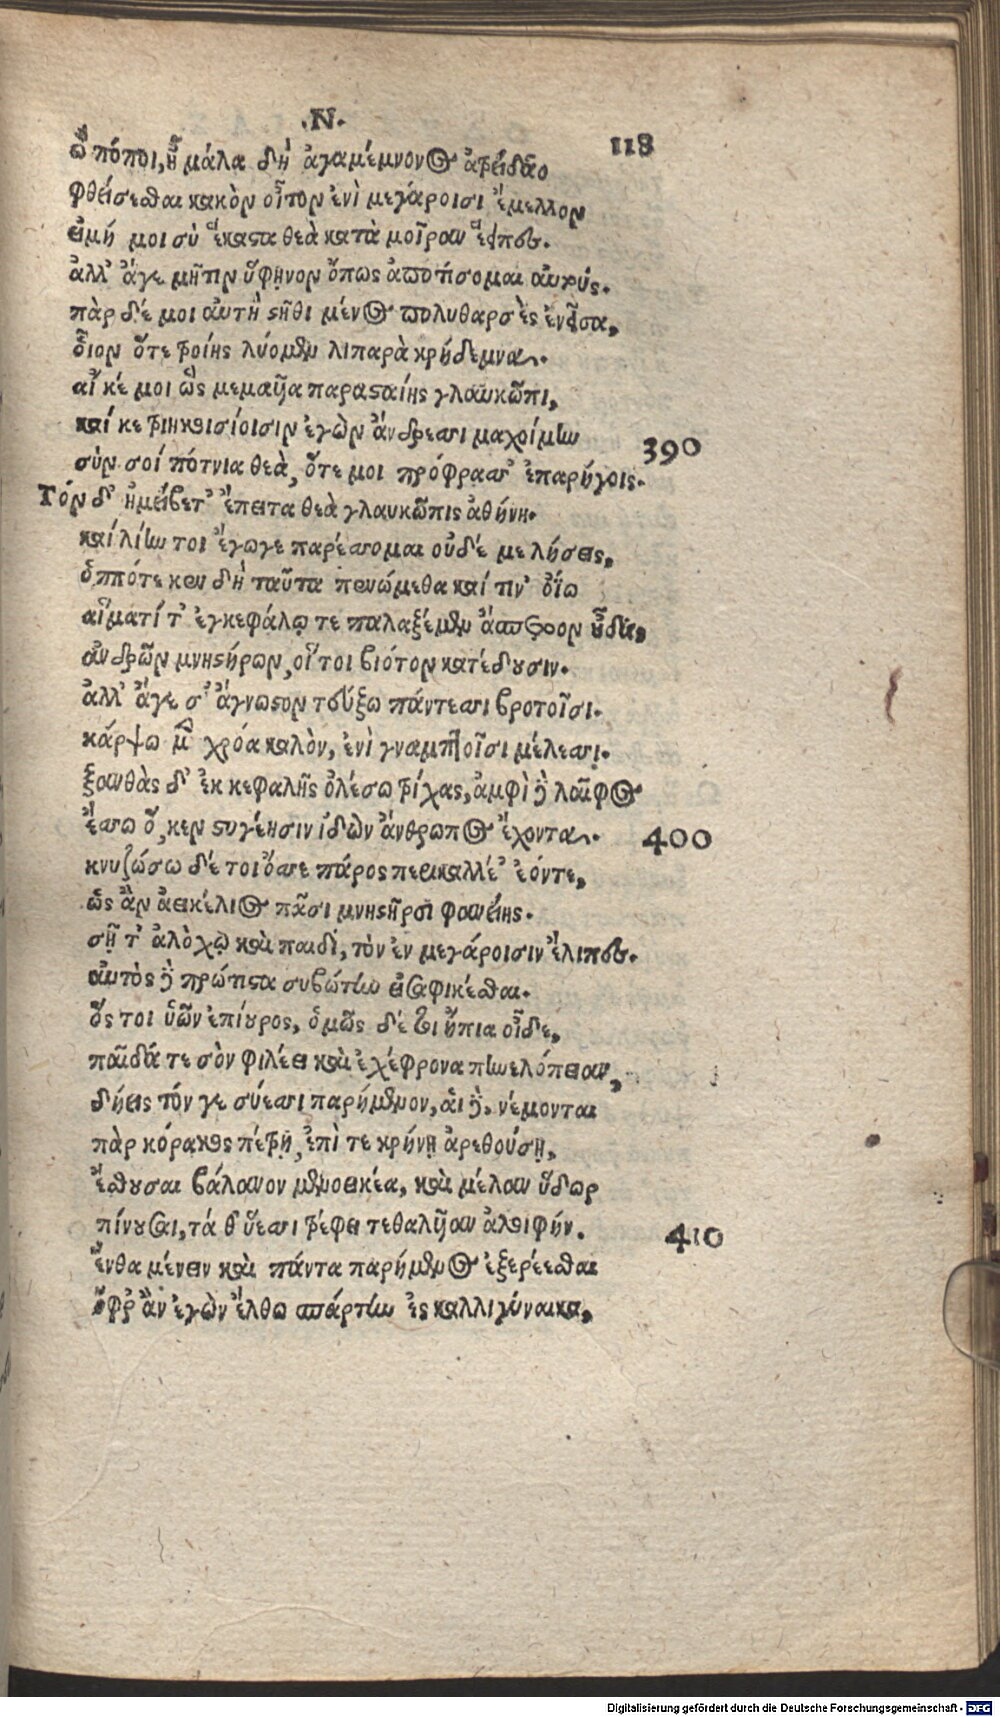 .Ν.
118
ὢ πόποι, ἦ μάλα δὴ ἀγαμέμνονος ἀτρείδαο
φθείσεσθαι κακὸν οἶτον ἐνὶ μεγάροισι ἔμελλον
εἰμή μοι σὺ ἕκαστα θεὰ κατὰ μοῖραν ἔειπες.
ἀλλ' ἄγε μῆτιν ὕφηνον ὅπως ἀποτίσομαι αὐτούς.
πὰρ δέ μοι αὐτὴ στῆθι μένος πολυθαρσὲς ἐνεῖσα,
οἷον ὅτε τροίης λύομεν λιπαρὰ κρήδεμνα.
αἴ κέ μοι ὣς μεμαυῖα παρασταίης γλαυκῶπι,
καί κε τριηκοσίοισιν ἐγὼν ἄνδρεσσι μαχοίμην 390
σὺν σοί πότνια θεὰ, ὅτε μοι πρόφρασσ' ἐπαρήγοις.
Τόν δ' ἠμείβετ' ἔπειτα θεὰ γλαυκῶπις ἀθήνη.
καί λίην τοι ἔγωγε παρέσσομαι οὐδέ με λήσεις,
ὁππότε κεν δὴ ταῦτα πενώμεθα καί τιν' ὀΐω
αἵματί τ' ἐγκεφάλῳ τε παλαξέμεν ἄσπετον οὖδας
ἀνδρῶν μνηστήρων, οἵ τοι βιότον κατέδουσιν.
ἀλλ' ἄγε σ' ἄγνωστον τεύξω πάντεσσι βροτοῖσι.
κάρψω μὲν χρόα καλὸν, ἐνὶ γναμπτοῖσι μέλεσσι.
ξανθὰς δ' ἐκ κεφαλῆς ὀλέσω τρίχας, ἀμφὶ δὲ λαῖφος
ἕσσω ὅ, κεν στυγέησιν ἰδὼν ἄνθρωπος ἔχοντα. 400
κνυζώσω δέ τοι ὄσσε πάρος περικαλλέ' ἐόντε,
ὡς ἂν ἀεικέλιος πᾶσι μνηστῆρσι φανείης.
σῇ τ' ἀλόχῳ καὶ παιδὶ, τὸν ἐν μεγάροισιν ἔλιπες.
αὐτὸς δὲ πρώτιστα συβώτην εἰσαφικέσθαι.
ὅς τοι ὑῶν ἐπίουρος, ὁμῶς δέ τοι ἤπια οἶδε,
παῖδά τε σὸν φιλέει καὶ ἐχέφρονα πηνελόπειαν,
δήεις τόν γε σύεσσι παρήμενον, αἱ δὲ νέμονται
πὰρ κόρακος πέτρῃ, ἐπί τε κρήνῃ ἀρεθούσῃ,
ἔσθουσαι βάλανον μενοεικέα, καὶ μέλαν ὕδωρ
πίνουσαι, τά θ' ὕεσσι τρέφει τεθαλυῖαν ἀλοιφήν. 410
ἔνθα μένειν καὶ πάντα παρήμενος ἐξερέεσθαι
ὄφρ' ἂν ἐγὼν ἔλθω σπάρτην ἐς καλλιγύναικα,
Digitalisierung gefördert durch die Deutsche Forschungsgemeinschaft · DFG